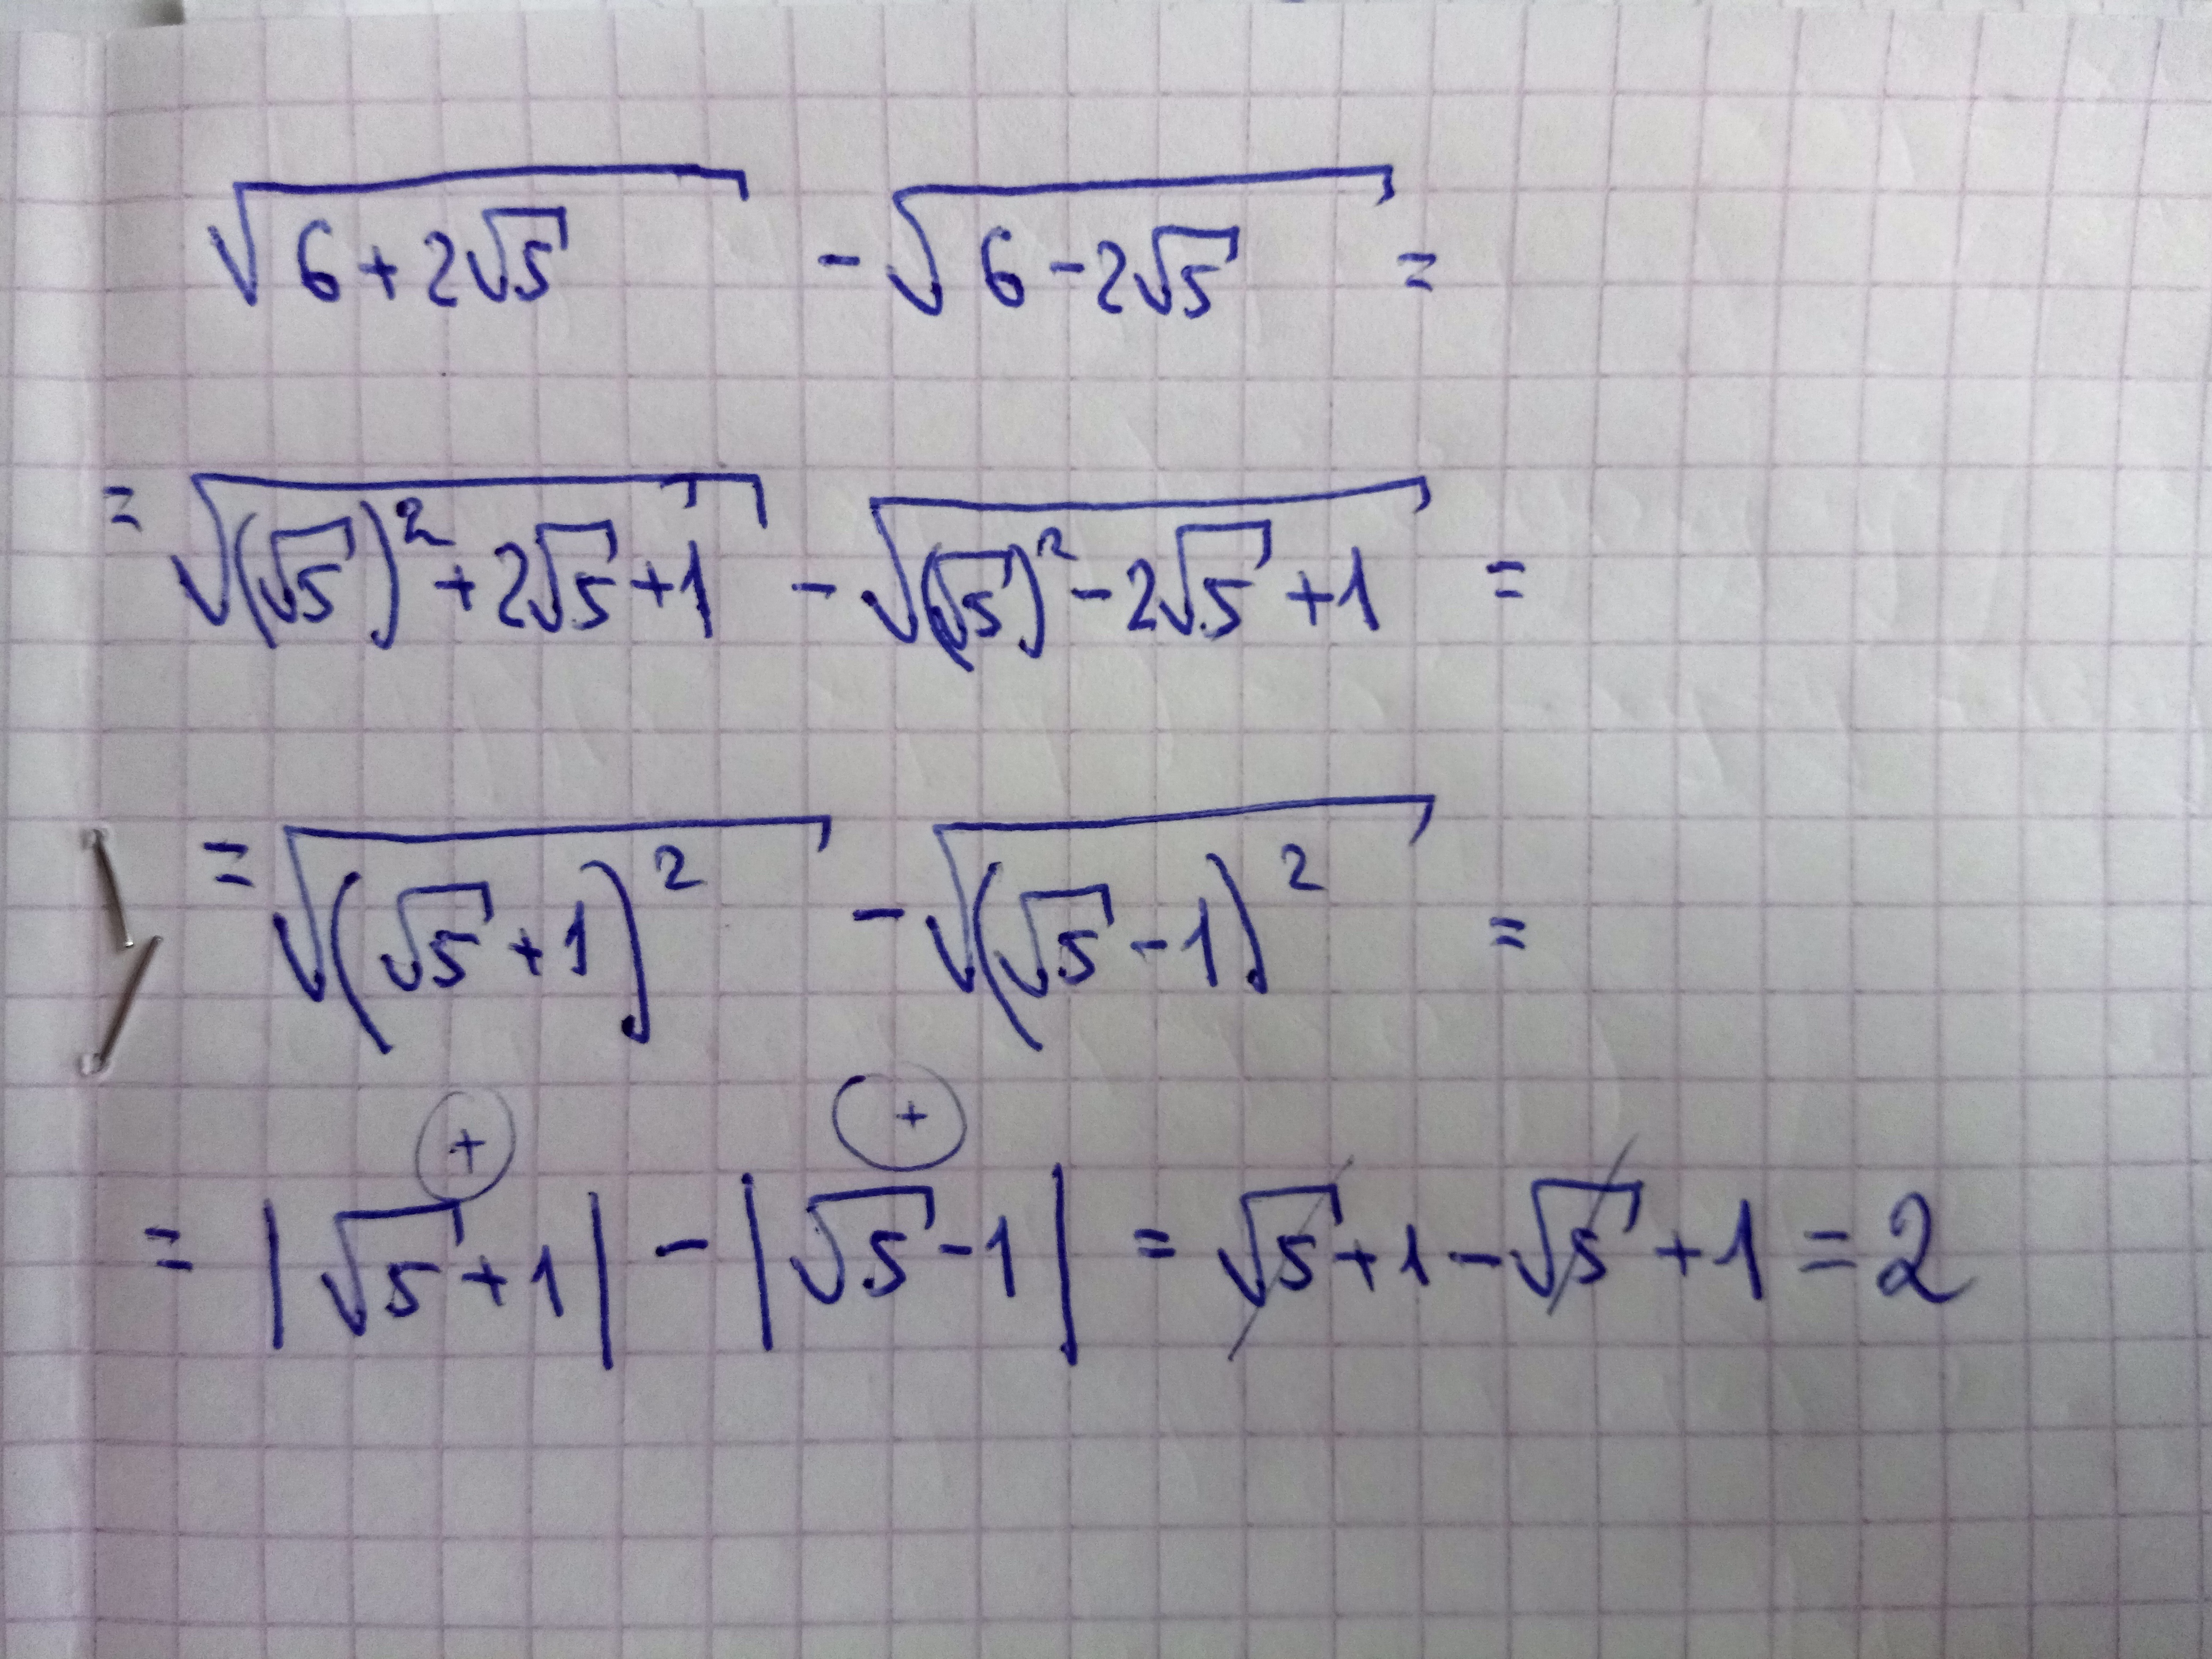 √(6+2√5) - √(6-2√5) =
= √((√5)²+2√5+1) - √((√5)²-2√5+1) =
= √((√5+1)²) - √((√5-1)²) =
+ +
= |√5+1| - |√5-1| = √5+1-√5+1=2